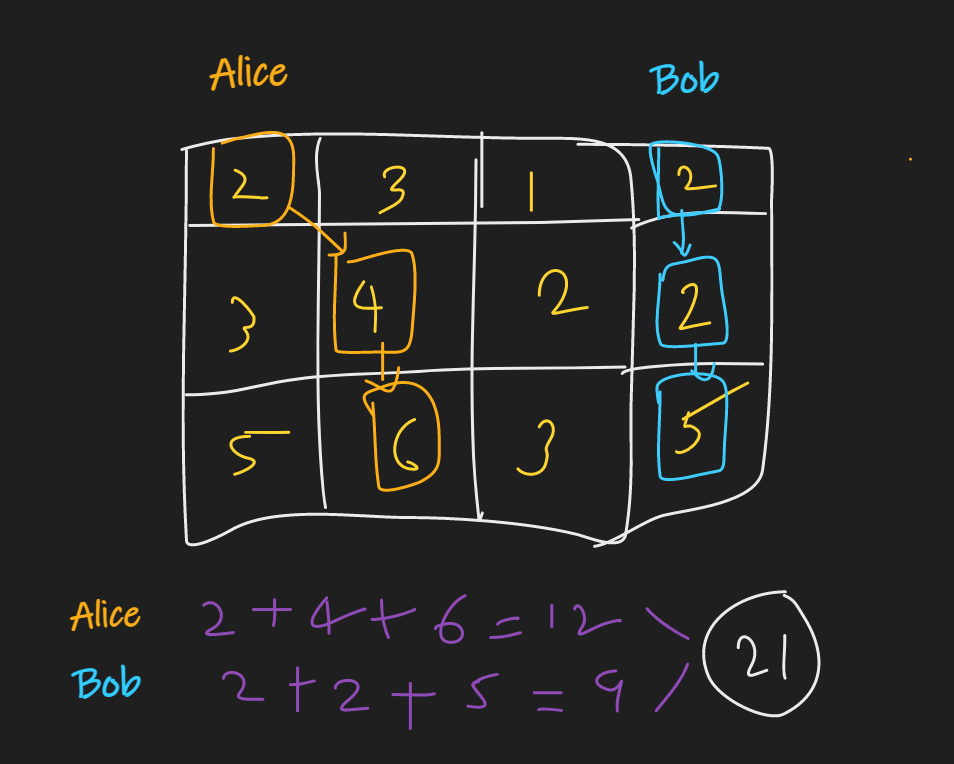 Alice Bob
2 3 1 2
3 4 2 2
5 6 3 5
Alice 2+4+6=12
Bob 2+2+5=9
21